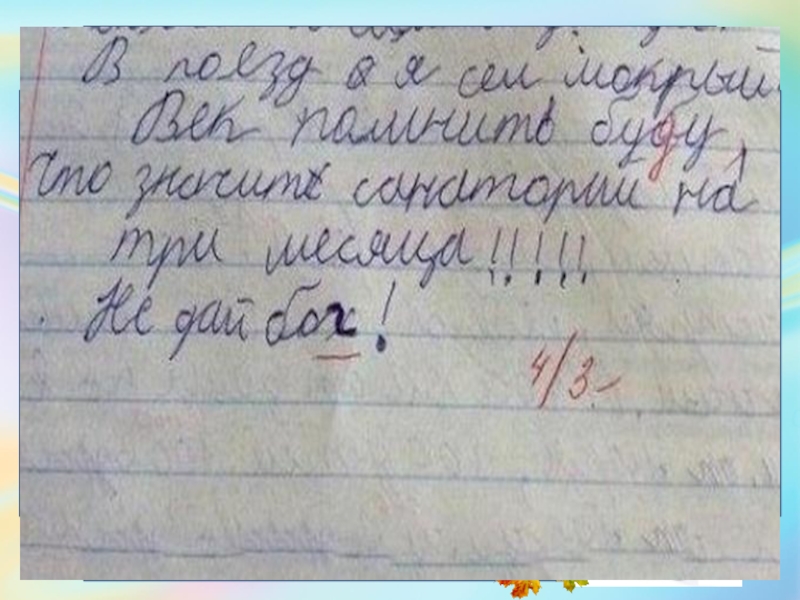 В поезд я сел мокрый.
Век помнить буду,
Что значить санаторий на
три месяца!!!!!!
Не дай бох!
4/3-